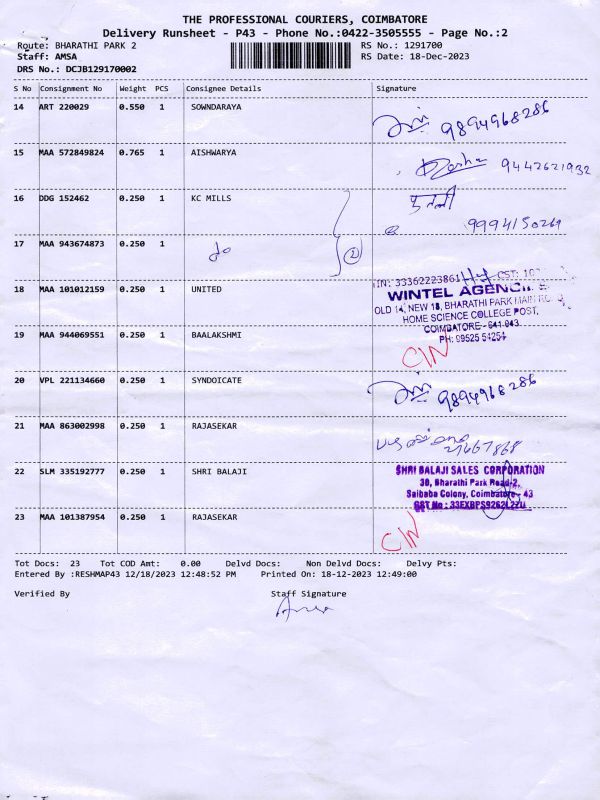 THE PROFESSIONAL COURIERS, COIMBATORE
Delivery Runsheet - P43 - Phone No.:0422-3505555 - Page No.:2
Route: BHARATHI PARK 2 RS No.: 1291700
Staff: AMSA RS Date: 18-Dec-2023
DRS No.: DCJB129170002
S No Consignment No Weight PCS Consignee Details Signature
14 ART 220029 0.550 1 SOWNDARAYA 9894968286
15 MAA 572849824 0.765 1 AISHWARYA 9442621932
16 DDG 152462 0.250 1 KC MILLS 9994150269
17 MAA 943674873 0.250 1 do 2
18 MAA 101012159 0.250 1 UNITED
TIN: 33362223861 CST:
WINTEL AGENCIES
OLD 14, NEW 18, BHARATHI PARK MAIN ROAD,
HOME SCIENCE COLLEGE POST,
COIMBATORE - 641 043.
PH: 99525 54251
19 MAA 944069551 0.250 1 BAALAKSHMI C/N
20 VPL 221134660 0.250 1 SYNDOICATE 9894968286
21 MAA 863002998 0.250 1 RAJASEKAR
22 SLM 335192777 0.250 1 SHRI BALAJI
SHRI BALAJI SALES CORPORATION
30, Bharathi Park Road-2,
Saibaba Colony, Coimbatore - 43
GST No : 33EXBPS9262L2ZU
23 MAA 101387954 0.250 1 RAJASEKAR C/N
Tot Docs: 23 Tot COD Amt: 0.00 Delvd Docs: Non Delvd Docs: Delvy Pts:
Entered By :RESHMAP43 12/18/2023 12:48:52 PM Printed On: 18-12-2023 12:49:00
Verified By Staff Signature
Amsa